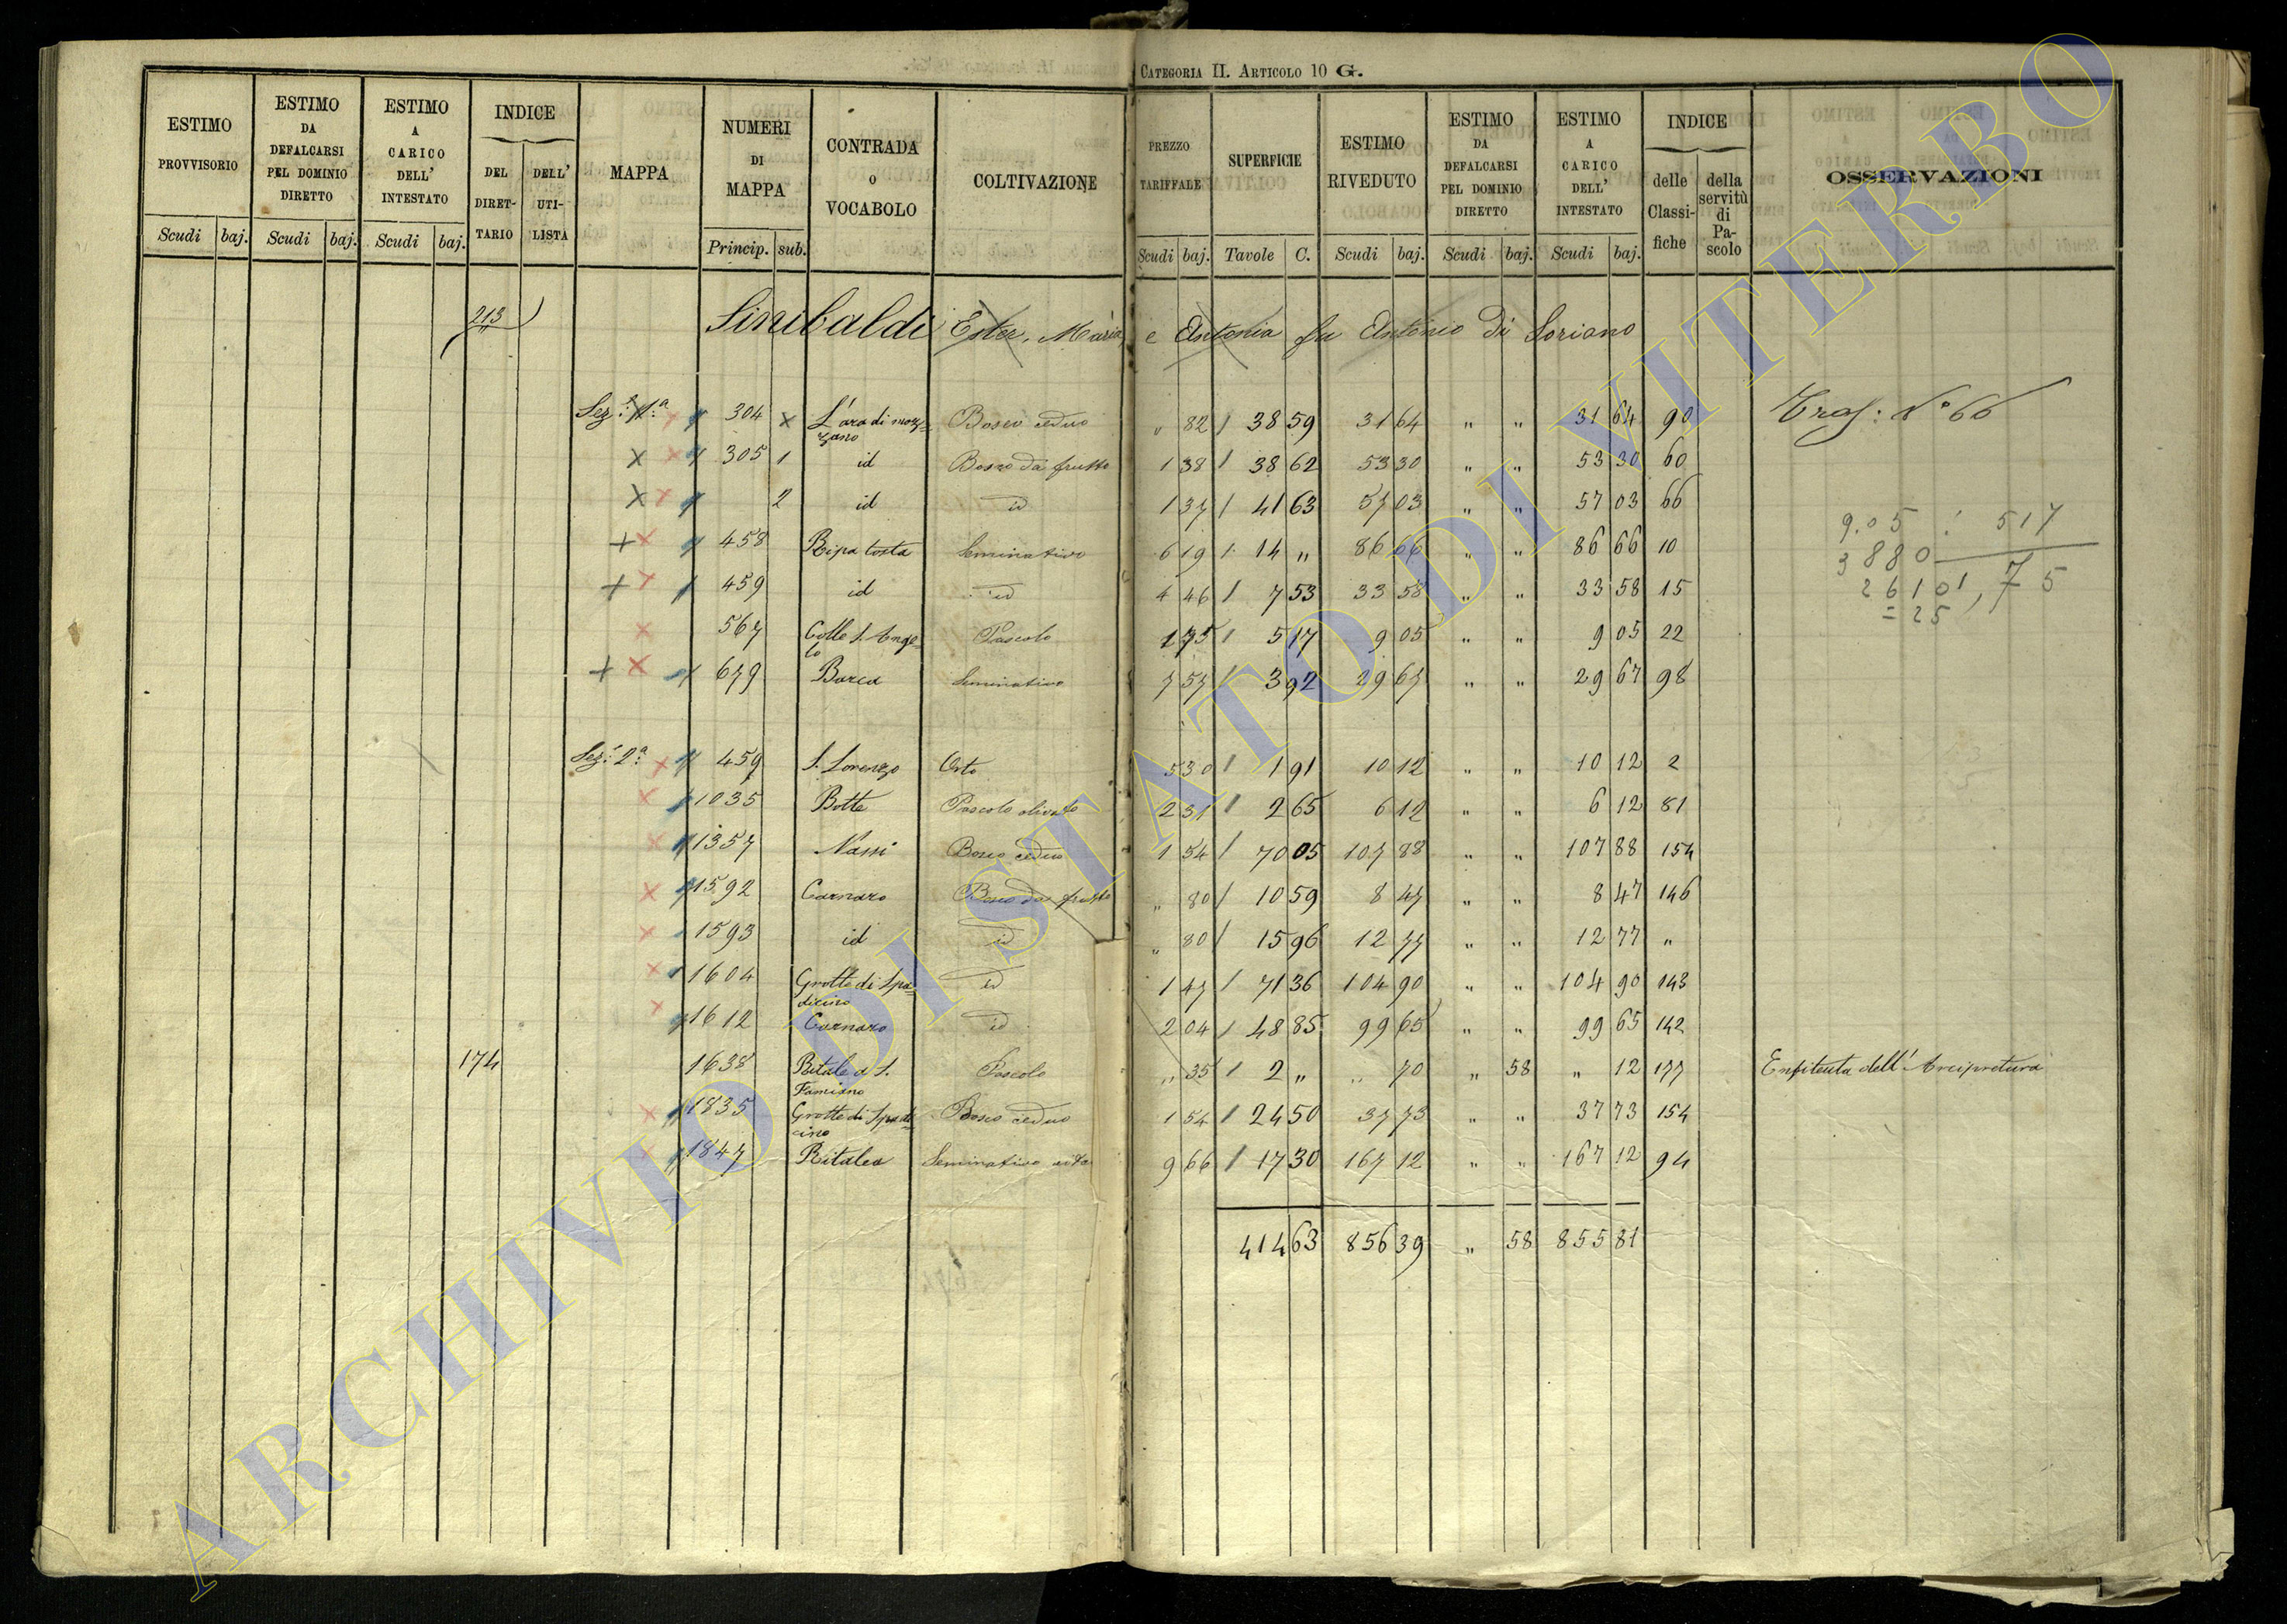 CATEGORIA II. ARTICOLO 10 G.
ESTIMO PROVVISORIO Scudi baj.
ESTIMO DA DEFALCARSI PEL DOMINIO DIRETTO Scudi baj.
ESTIMO A CARICO DELL' INTESTATO Scudi baj.
INDICE DEL DIRETTARIO DELL' UTILISTA
MAPPA
NUMERI DI MAPPA Princip. sub.
CONTRADA O VOCABOLO
COLTIVAZIONE
PREZZO TARIFFALE Scudi baj.
SUPERFICIE Tavole C.
ESTIMO RIVEDUTO Scudi baj.
ESTIMO DA DEFALCARSI PEL DOMINIO DIRETTO Scudi baj.
ESTIMO A CARICO DELL' INTESTATO Scudi baj.
INDICE delle Classifiche della servitù di Pascolo
OSSERVAZIONI
213 Sinibaldi Ester, Maria, e Antonia fu Antonio di Soriano
Sez: 1ª 304 L'ara di mozzano Bosco ceduo " 82 38 59 31 64 " " 31 64 90 Tras: N° 66
305 1 id Bosco da frutto 1 38 38 62 53 30 " " 53 30 60
2 id id 1 37 41 63 57 03 " " 57 03 66
458 Ripa tosta Seminativo 6 19 14 " 86 66 " " 86 66 10
459 id id 4 46 7 53 33 58 " " 33 58 15
567 Colle S. Angelo Pascolo 1 75 5 17 9 05 " " 9 05 22
679 Barca Seminativo 7 57 3 92 29 67 " " 29 67 98
9.05 : 517
3880
2610 1,75
= 25
Sez: 2ª 459 S. Lorenzo Orto 5 30 1 91 10 12 " " 10 12 2
1035 Botte Pascolo olivato 2 31 2 65 6 12 " " 6 12 81
1357 Nassi Bosco ceduo 1 54 70 05 107 88 " " 107 88 154
1592 Carnaro Bosco da frutto " 80 10 59 8 47 " " 8 47 146
1593 id id " 80 15 96 12 77 " " 12 77 "
1604 Grotte di Spadicino id 1 47 71 36 104 90 " " 104 90 143
1612 Carnaro id 2 04 48 85 99 65 " " 99 65 142
174 1638 Ritale a S. Famiano Pascolo " 35 2 " " 70 " 58 " 12 177 Enfiteuta dell'Arcipretura
1835 Grotte di Spadicino Bosco ceduo 1 54 24 50 37 73 " " 37 73 154
1847 Ritalea Seminativo vito 9 66 17 30 167 12 " " 167 12 94
414 63 856 39 " 58 855 81
ARCHIVIO DI STATO DI VITERBO